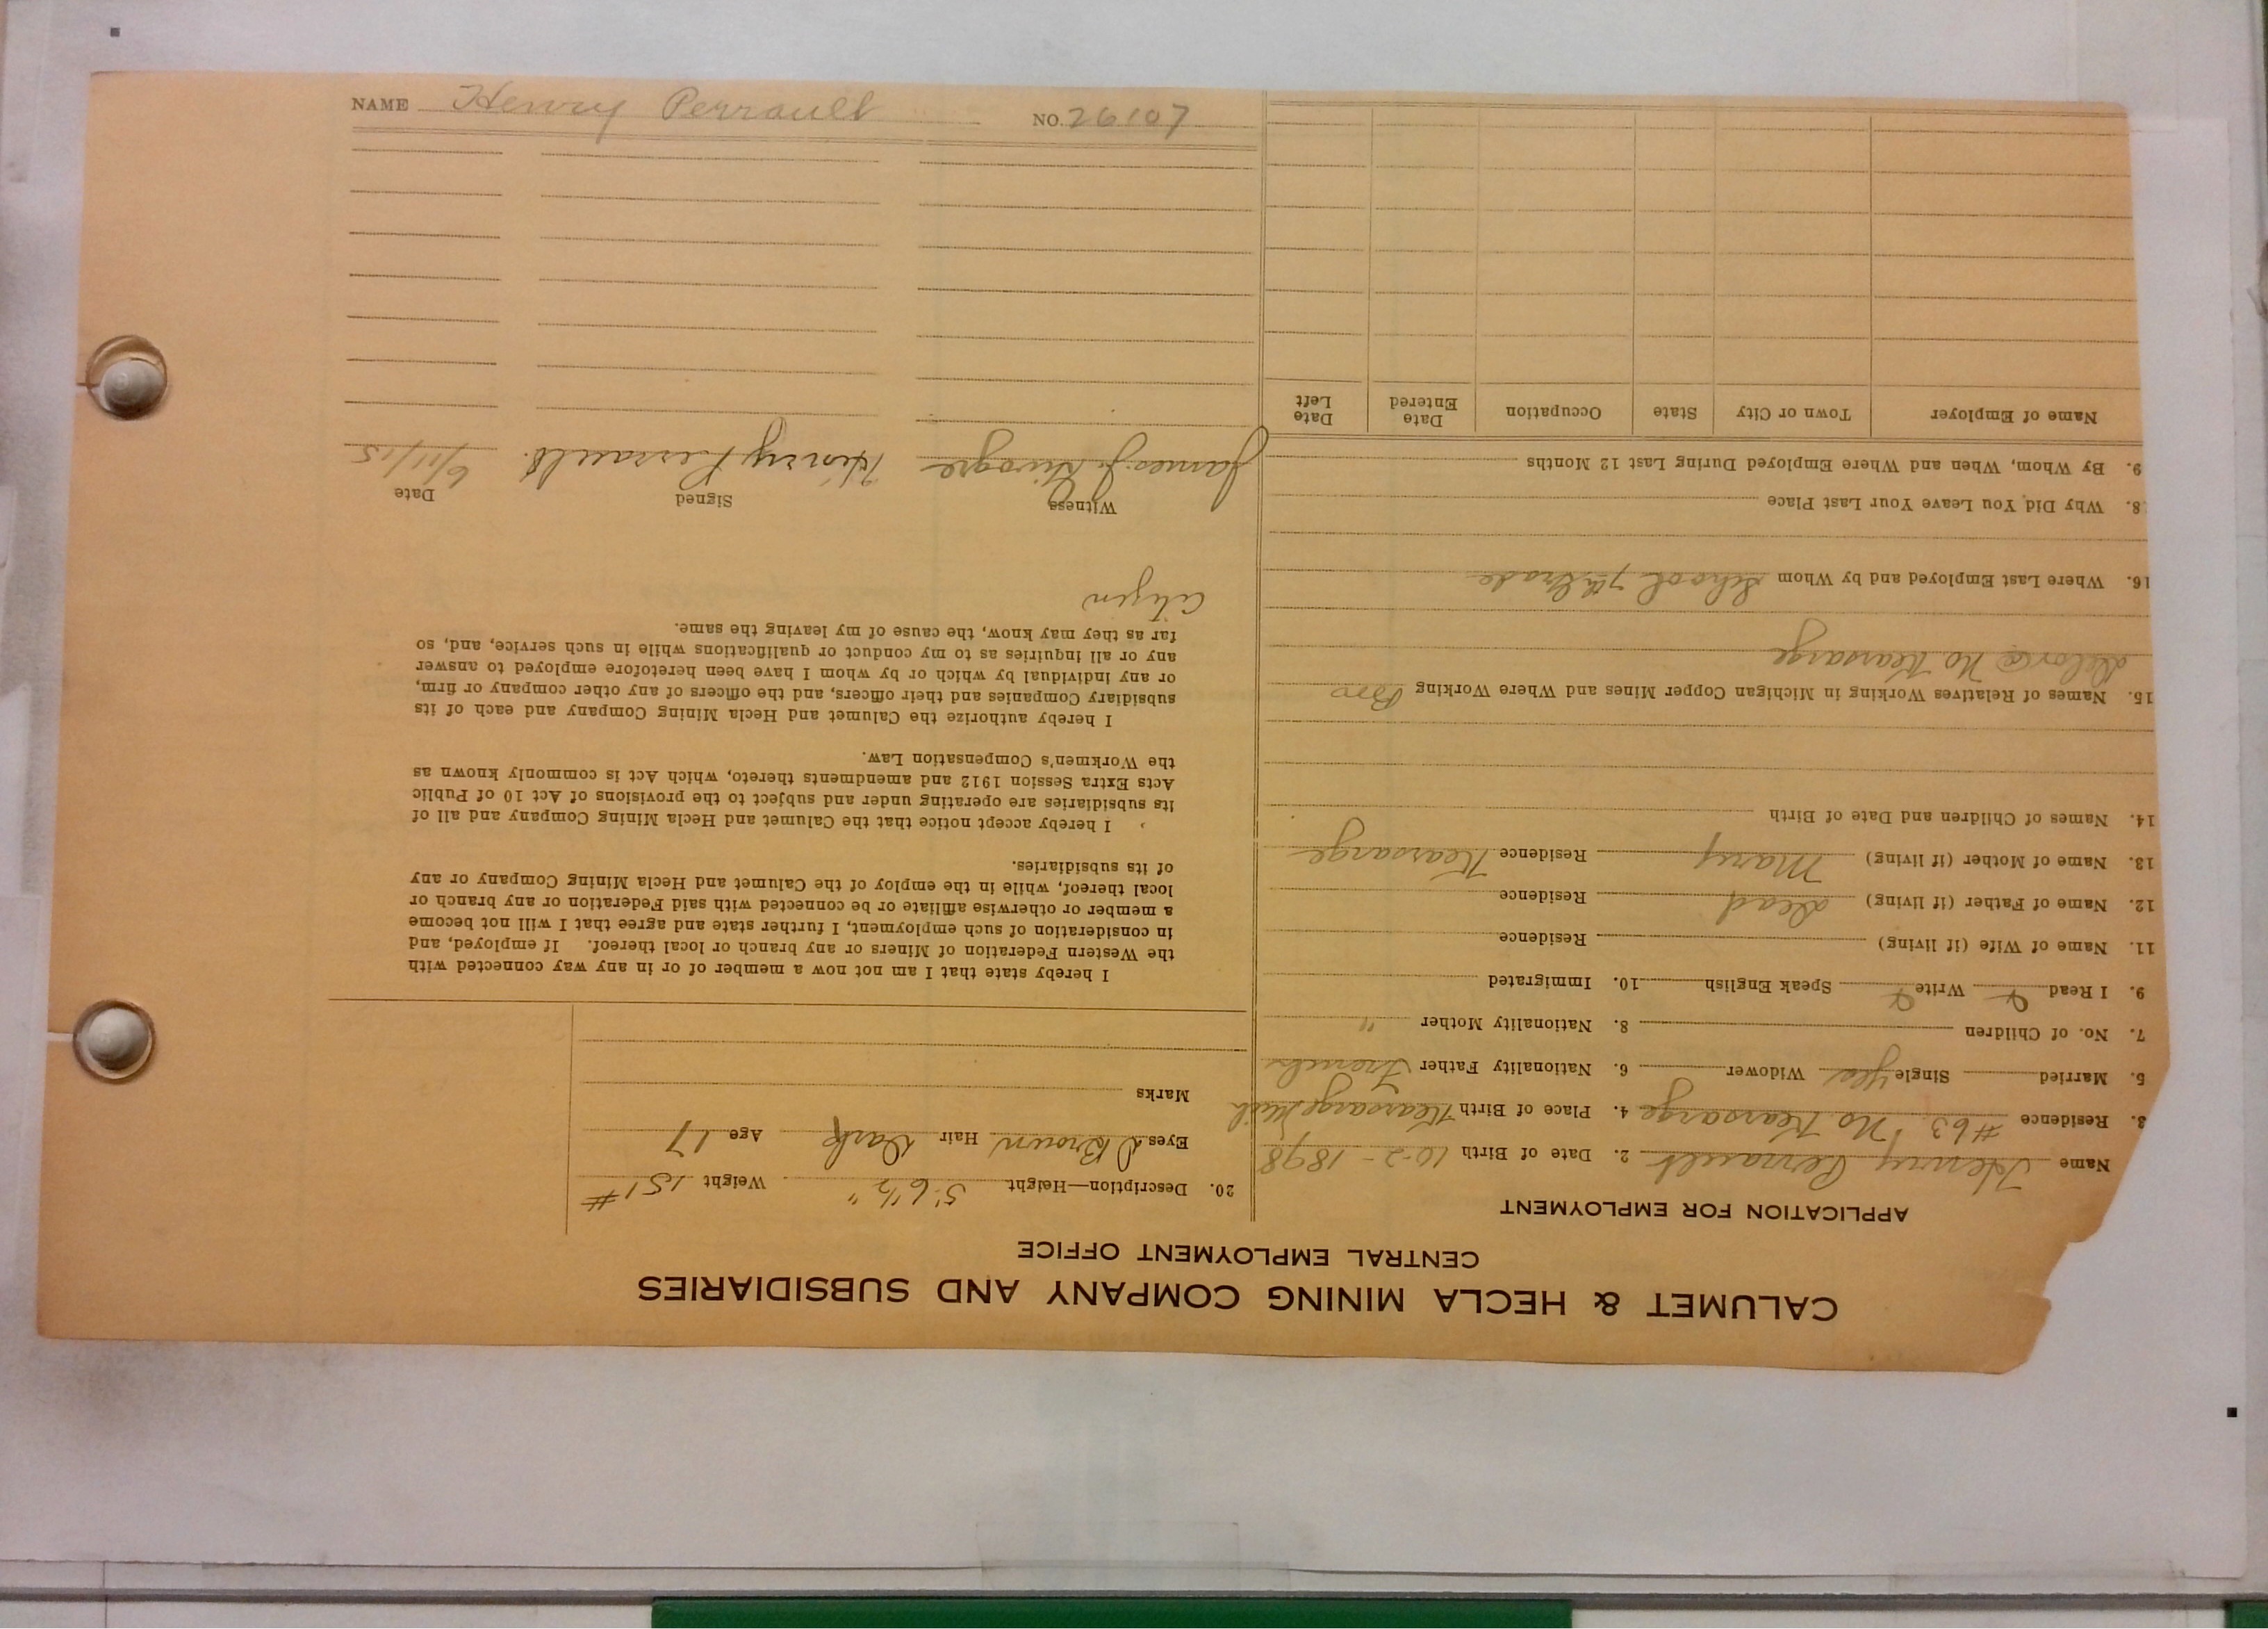 CALUMET & HECLA MINING COMPANY AND SUBSIDIARIES
CENTRAL EMPLOYMENT OFFICE
APPLICATION FOR EMPLOYMENT
Name Henry Perrault 2. Date of Birth 10-2-1898
3. Residence #63 No Kearsarge 4. Place of Birth Kearsarge Mich
5. Married Single yes Widower 6. Nationality Father French
7. No. of Children 8. Nationality Mother "
9. I Read Write Speak English 10. Immigrated
11. Name of Wife (if living) Residence
12. Name of Father (if living) Dead Residence
13. Name of Mother (if living) Mary Residence Kearsarge
14. Names of Children and Date of Birth
15. Names of Relatives Working in Michigan Copper Mines and Where Working Bro
No Kearsarge
16. Where Last Employed and by Whom School 7th Grade
8. Why Did You Leave Your Last Place
9. By Whom, When and Where Employed During Last 12 Months
Name of Employer Town or City State Occupation Date Entered Date Left
20. Description—Height 5' 6 1/2" Weight 151 #
Eyes Brown Hair Dark Age 17
Marks
I hereby state that I am not now a member of or in any way connected with
the Western Federation of Miners or any branch or local thereof. If employed, and
in consideration of such employment, I further state and agree that I will not become
a member or otherwise affiliate or be connected with said Federation or any branch or
local thereof, while in the employ of the Calumet and Hecla Mining Company or any
of its subsidiaries.
I hereby accept notice that the Calumet and Hecla Mining Company and all of
its subsidiaries are operating under and subject to the provisions of Act 10 of Public
Acts Extra Session 1912 and amendments thereto, which Act is commonly known as
the Workmen's Compensation Law.
I hereby authorize the Calumet and Hecla Mining Company and each of its
subsidiary Companies and their officers, and the officers of any other company or firm,
or any individual by which or by whom I have been heretofore employed to answer
any or all inquiries as to my conduct or qualifications while in such service, and, so
far as they may know, the cause of my leaving the same.
Citizen
Witness Signed Date
James J. Henry Perrault. 6/11/15
NAME Henry Perrault NO. 26107